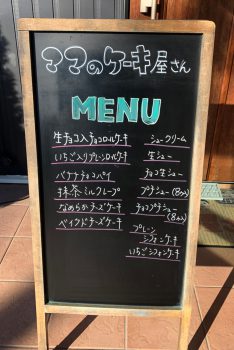 ママのケーキ屋さん
MENU
生チョコ入チョコロールケーキ
いちご入りプレーンロールケーキ
バナナチョコパイ
抹茶ミルクレープ
なめらかチーズケーキ
ベイクドチーズケーキ
シュークリーム
生シュー
チョコ生シュー
プチシュー(8コ入)
チョコプチシュー
(8コ入)
プレーン
シフォンケーキ
いちごシフォンケーキ